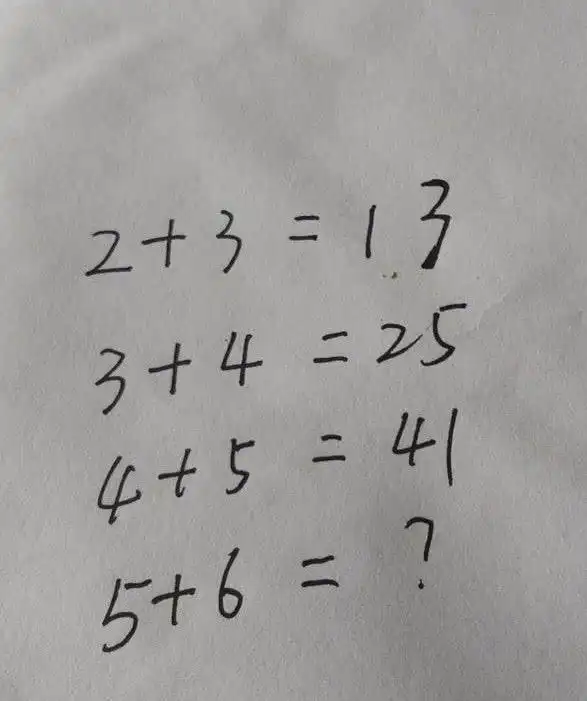 2+3 = 13
3+4 = 25
4+5 = 41
5+6 = ?